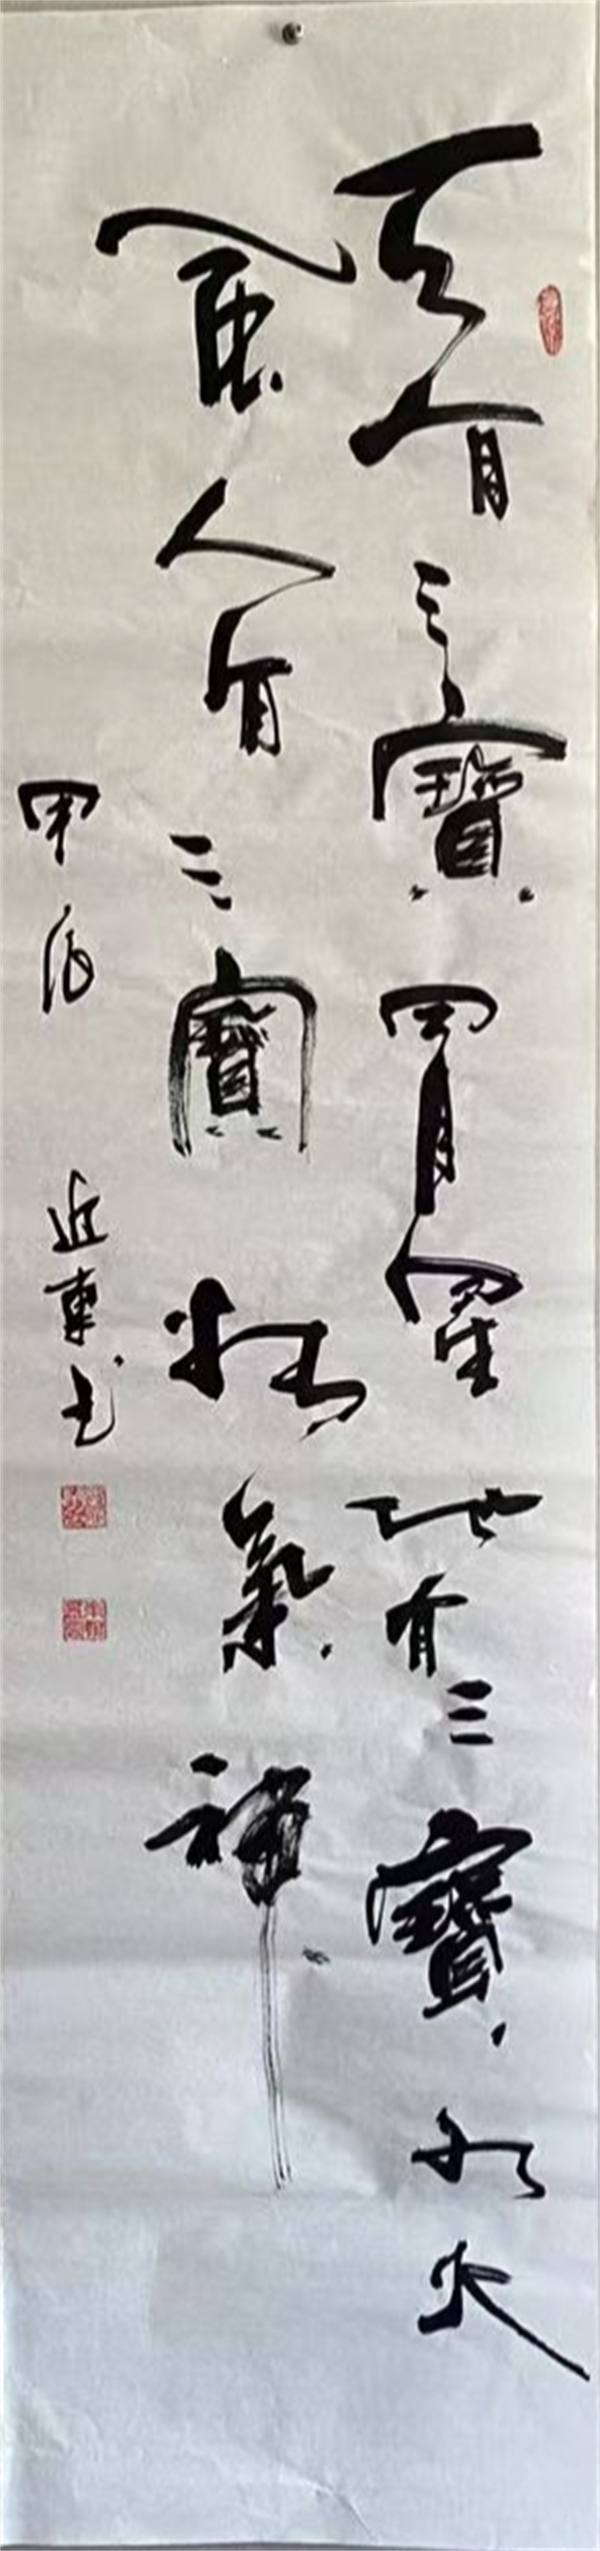 天有三寶日月星地有三寶水火
風人有三寶精氣神
甲辰 近東书